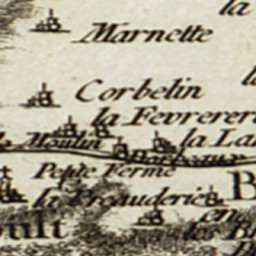 la
Marnette
Corbelin
la Fevrerer
le Moulin
la La
Petite Ferme
B
la Freauderie
en
oult
les B